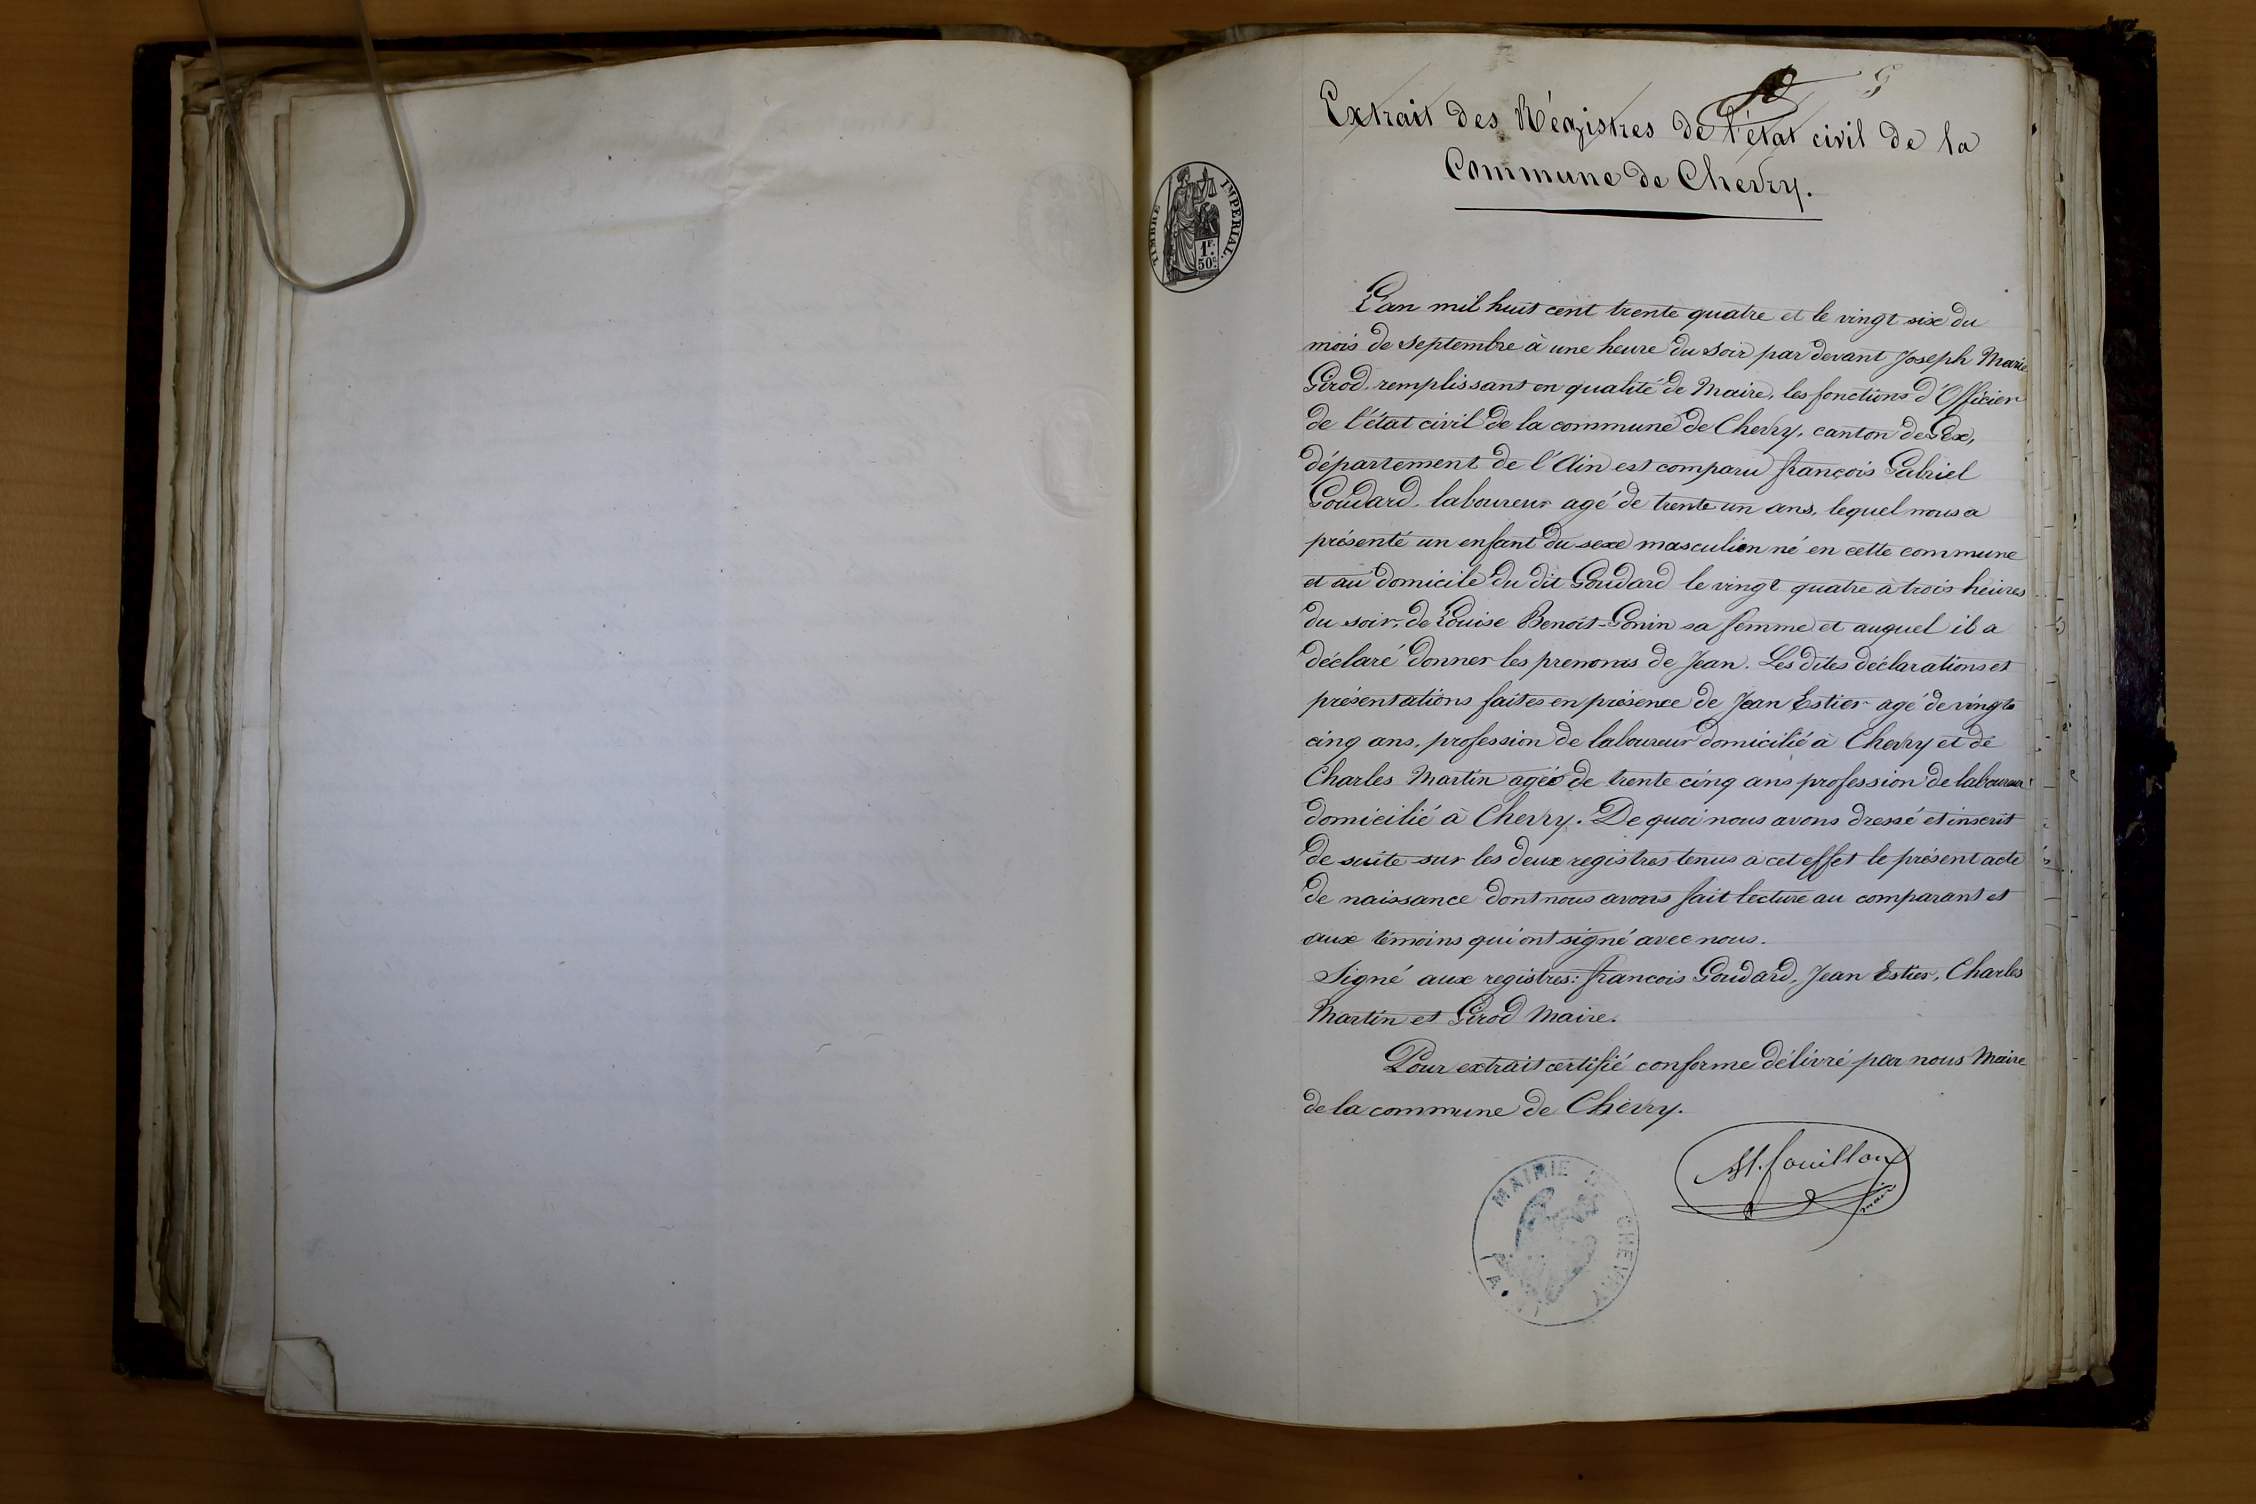 Extrait des Régistres de l'état civil de la
Commune de Chevry.
TIMBRE IMPERIAL.
1F.
50c.
L'an mil huit cent trente quatre et le vingt six du
mois de septembre à une heure du soir par devant Joseph Marie
Girod remplissant en qualité de Maire, les fonctions d'Officier
de l'état civil de la commune de Chevry, canton de Gex,
département de l'Ain est comparu françois Gabriel
Goudard laboureur agé de trente un ans, lequel nous a
présenté un enfant du sexe masculien né en cette commune
et au domicile du dit Goudard le vingt quatre à trois heures
du soir, de Louise Benoit-Gonin sa femme et auquel il a
déclaré donner les prenoms de Jean. Les dites déclarations et
présentations faites en présence de Jean Estier agé de vingt
cinq ans, profession de laboureur domicilié à Chevry et de
Charles Martin agé de trente cinq ans profession de laboureur
domicilié à Chevry. De quoi nous avons dressé et inscrit
de suite sur les deux registres tenus à cet effet le présent acte
de naissance dont nous avons fait lecture au comparant et
aux témoins qui ont signé avec nous.
Signé aux registres: françois Goudard, Jean Estier, Charles
Martin et Girod Maire.
Pour extrait certifié conforme délivré par nous Maire
de la commune de Chevry.
fouilloux
maire
MAIRIE DE CHEVRY